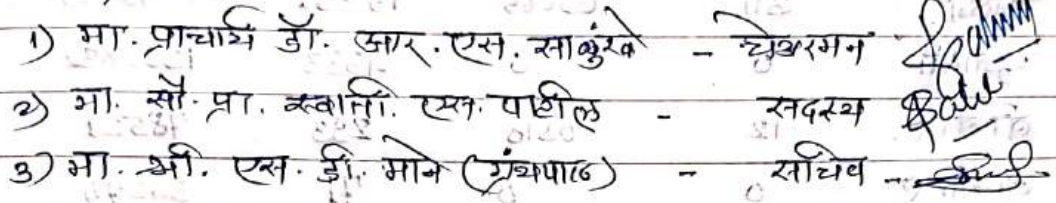 १) मा. प्राचार्य डॉ. आर. एस. साळुंखे - चेअरमन
२) मा. सौ. प्रा. स्वाती. एस. पाटील - सदस्य
३) मा. श्री. एस. डी. माने (ग्रंथपाल) - सचिव -